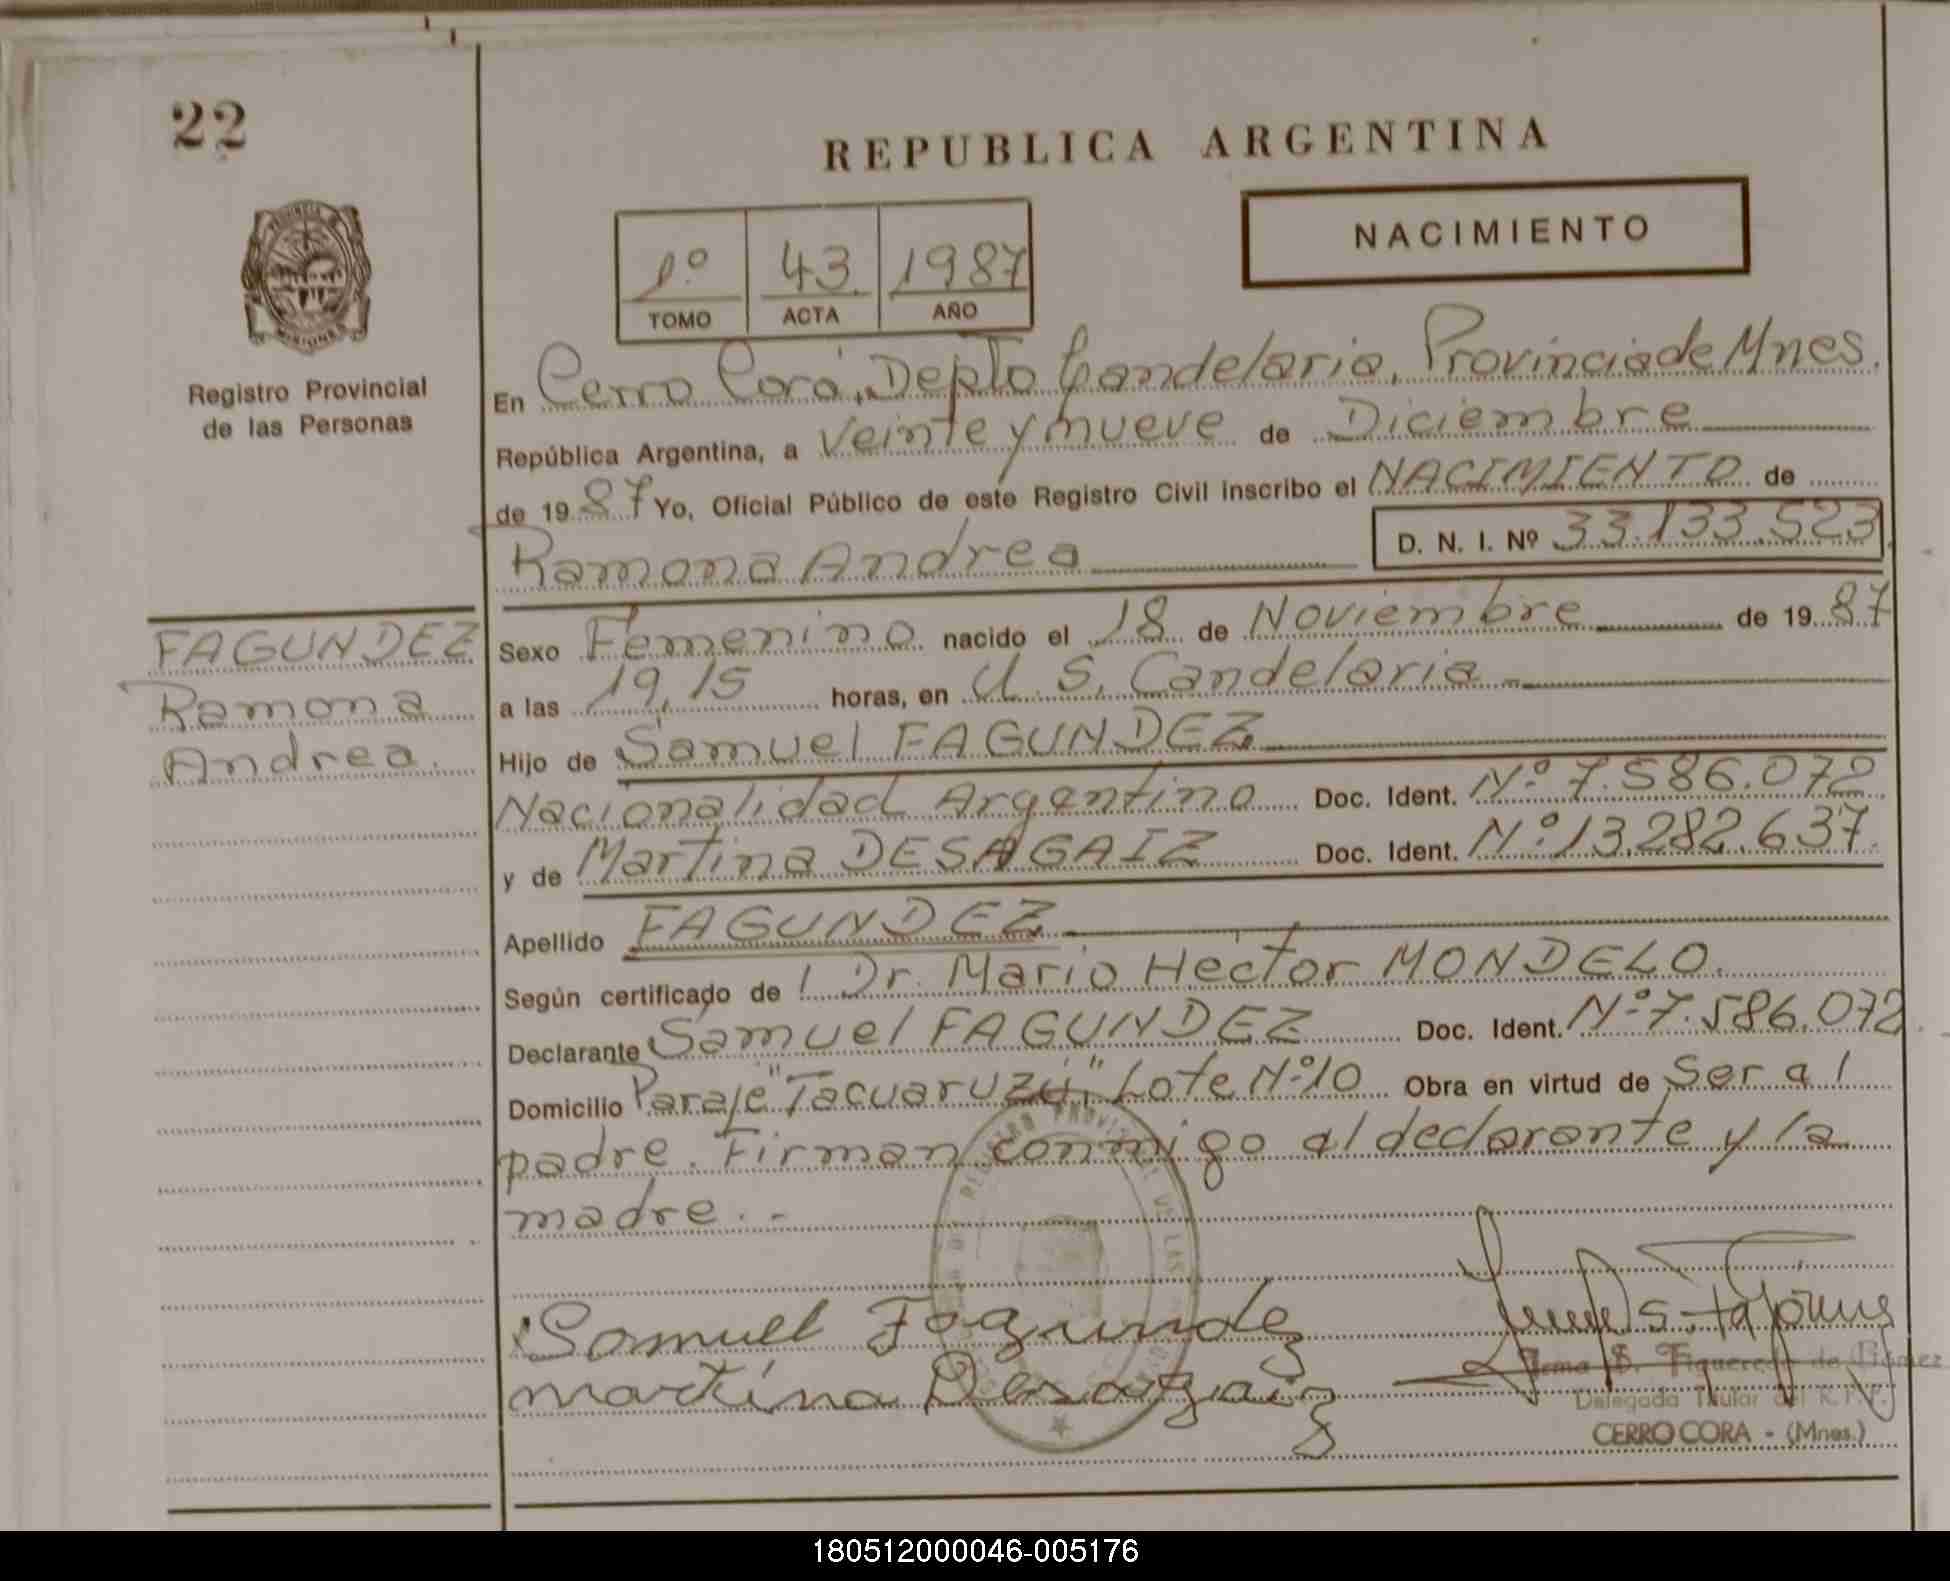 22
REPUBLICA ARGENTINA
NACIMIENTO
1º 43 1987
TOMO ACTA AÑO
MISIONES
Registro Provincial
de las Personas
En Cerro Corá, Depto Candelaria, Provincia de Mnes.
República Argentina, a veinte y nueve de Diciembre
de 1987 Yo, Oficial Público de este Registro Civil inscribo el NACIMIENTO de
Ramona Andrea D. N. I. Nº 33.133.523
FAGUNDEZ
Ramona
Andrea.
Sexo Femenino nacido el 18 de Noviembre de 1987
a las 19,15 horas, en U. S. Candelaria
Hijo de Samuel FAGUNDEZ
Nacionalidad Argentino Doc. Ident. Nº 7.586.072
y de Martina DESAGAIZ Doc. Ident. Nº 13.282.637.
Apellido FAGUNDEZ
Según certificado de l Dr. Mario Héctor MONDELO.
Declarante Samuel FAGUNDEZ Doc. Ident. Nº 7.586.072
Domicilio Paraje "Tacuaruzú" Lote Nº 10 Obra en virtud de Ser al
padre. Firman conmigo al declarante y la
madre. . -
Samuell Fagundez
martina Desagaiz
Irma S. Figueredo de Gómez
Delegada Titular del R.P.P.
CERRO CORA - (Mnes.)
180512000046-005176